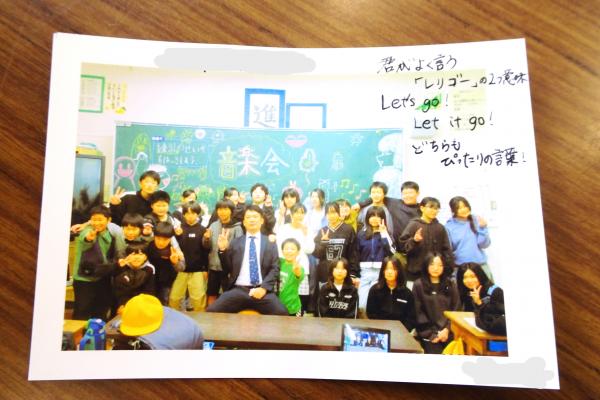 君がよく言う
「レリゴー」の2つ意味
Let's go!
Let it go!
どちらも
ぴったりの言葉!
進
音楽会